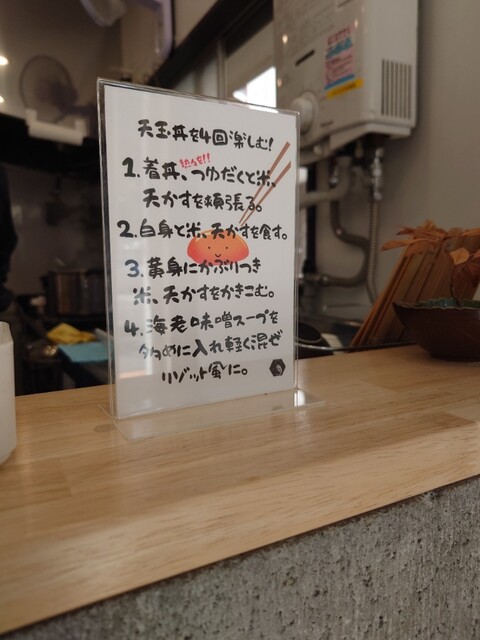 天玉丼を4回楽しむ!
熱々を!!
1.着丼、つゆだくと米、
天かすを頬張る。
2.白身と米、天かすを食す。
3.黄身にかぶりつき
米、天かすをかきこむ。
4.海老味噌スープを
多めに入れ軽く混ぜ
リゾット風に。